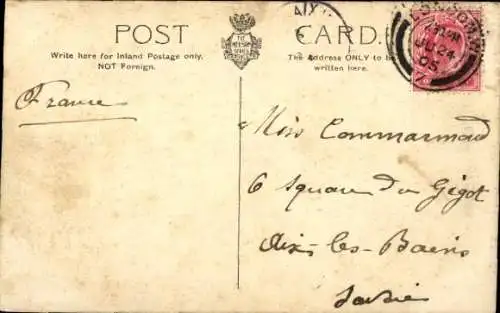 POST CARD.
Write here for Inland Postage only,
NOT Foreign.
The Address ONLY to be
written here.
AIX
JU 24
05
France
Miss Commarmond
6 Square du Gigot
Aix-les-Bains
Savoie